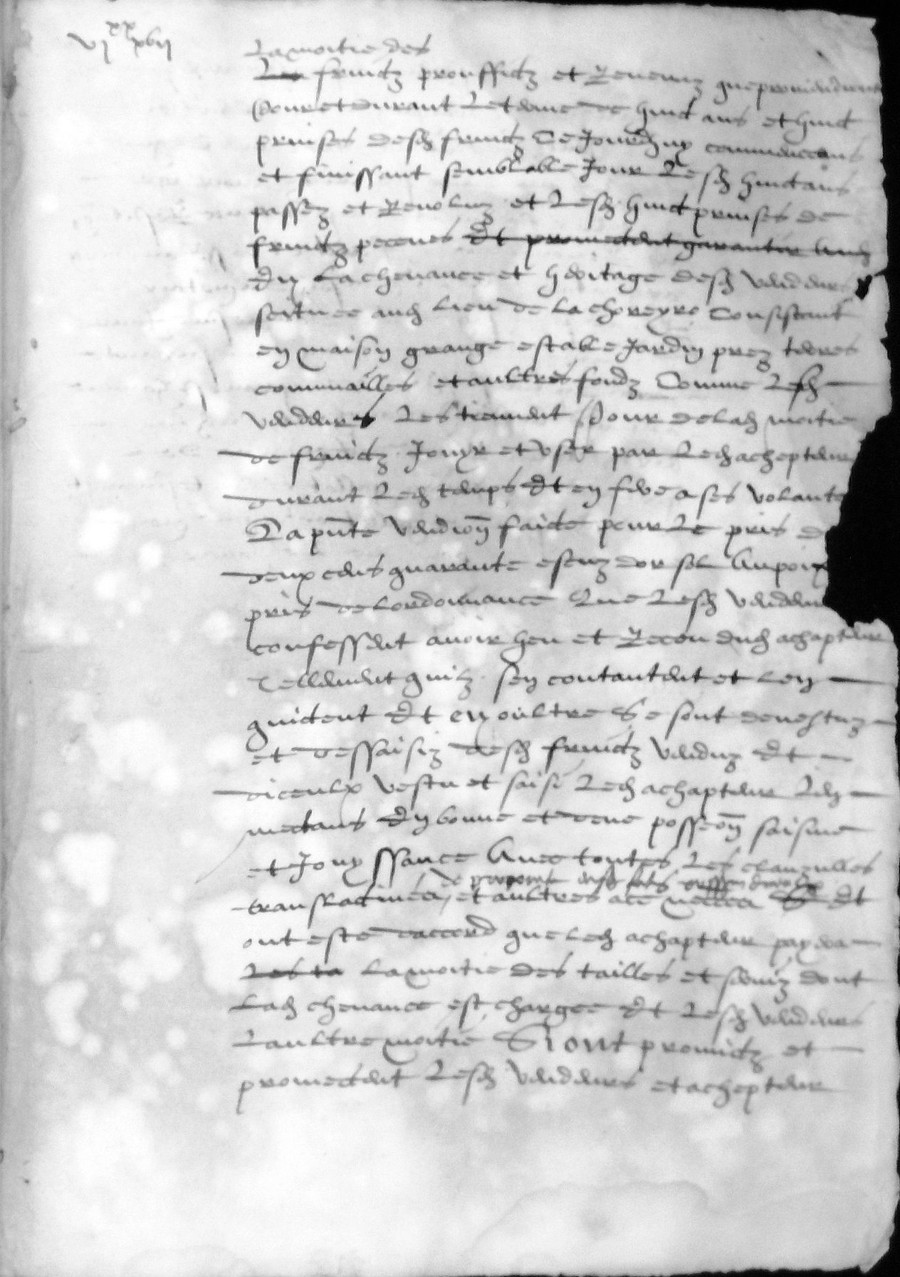 vi xx xvii
La moitie des
Les fruictz prouffictz et Revenuz que proviendront
Pour et durant Le terme de huict ans et huict
prinses desd fruictz De Jourdhuy commenceans
et finissant semblable Jour Lesd huict ans
passez et Revoluz et Lesd huict prinses de
fruictz peceues Et promectent garantir
En La chevance et heritage desd vendeurs
scituee aud Lieu de La choreyro Consistant
en maison grange estable Jardin prez terres
communailles et aultres fondz Comme Lesd
vendeurs Les tiennent Pour de lad moitie
de fruictz Jouyr et user par Led achepteur
durant Led temps Et en fere a ses volante
La pnte vendion faicte pour Le pris de
deux cens quarante escuz dor sol Au poix
pris de Lordonnance Que Lesd vendeurs
confessent avoir heu et Receu dud achapteur
Tellement quilz sen contantent et Len
quictent Et en oultre Se sont devestuz
et dessaisiz desd fruictz venduz Et
diceulx vestu et saisi Led achapteur Len
mectans En bonne et deue possion saisine
et Jouyssance Avec toutes Les clauzulles
translatives et aultres ace Et
ont este daccord que Led achapteur payera
La moitie des tailles et dont
Lad chevance est chargee Et Lesd vendeurs
Laultre moitie Si ont promictz et
promectent Lesd vendeurs et achepteur